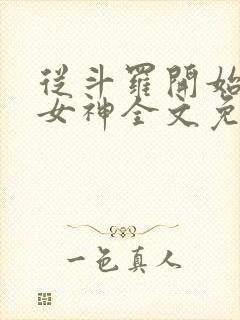 從斗羅開始
女神全文免
一色真人